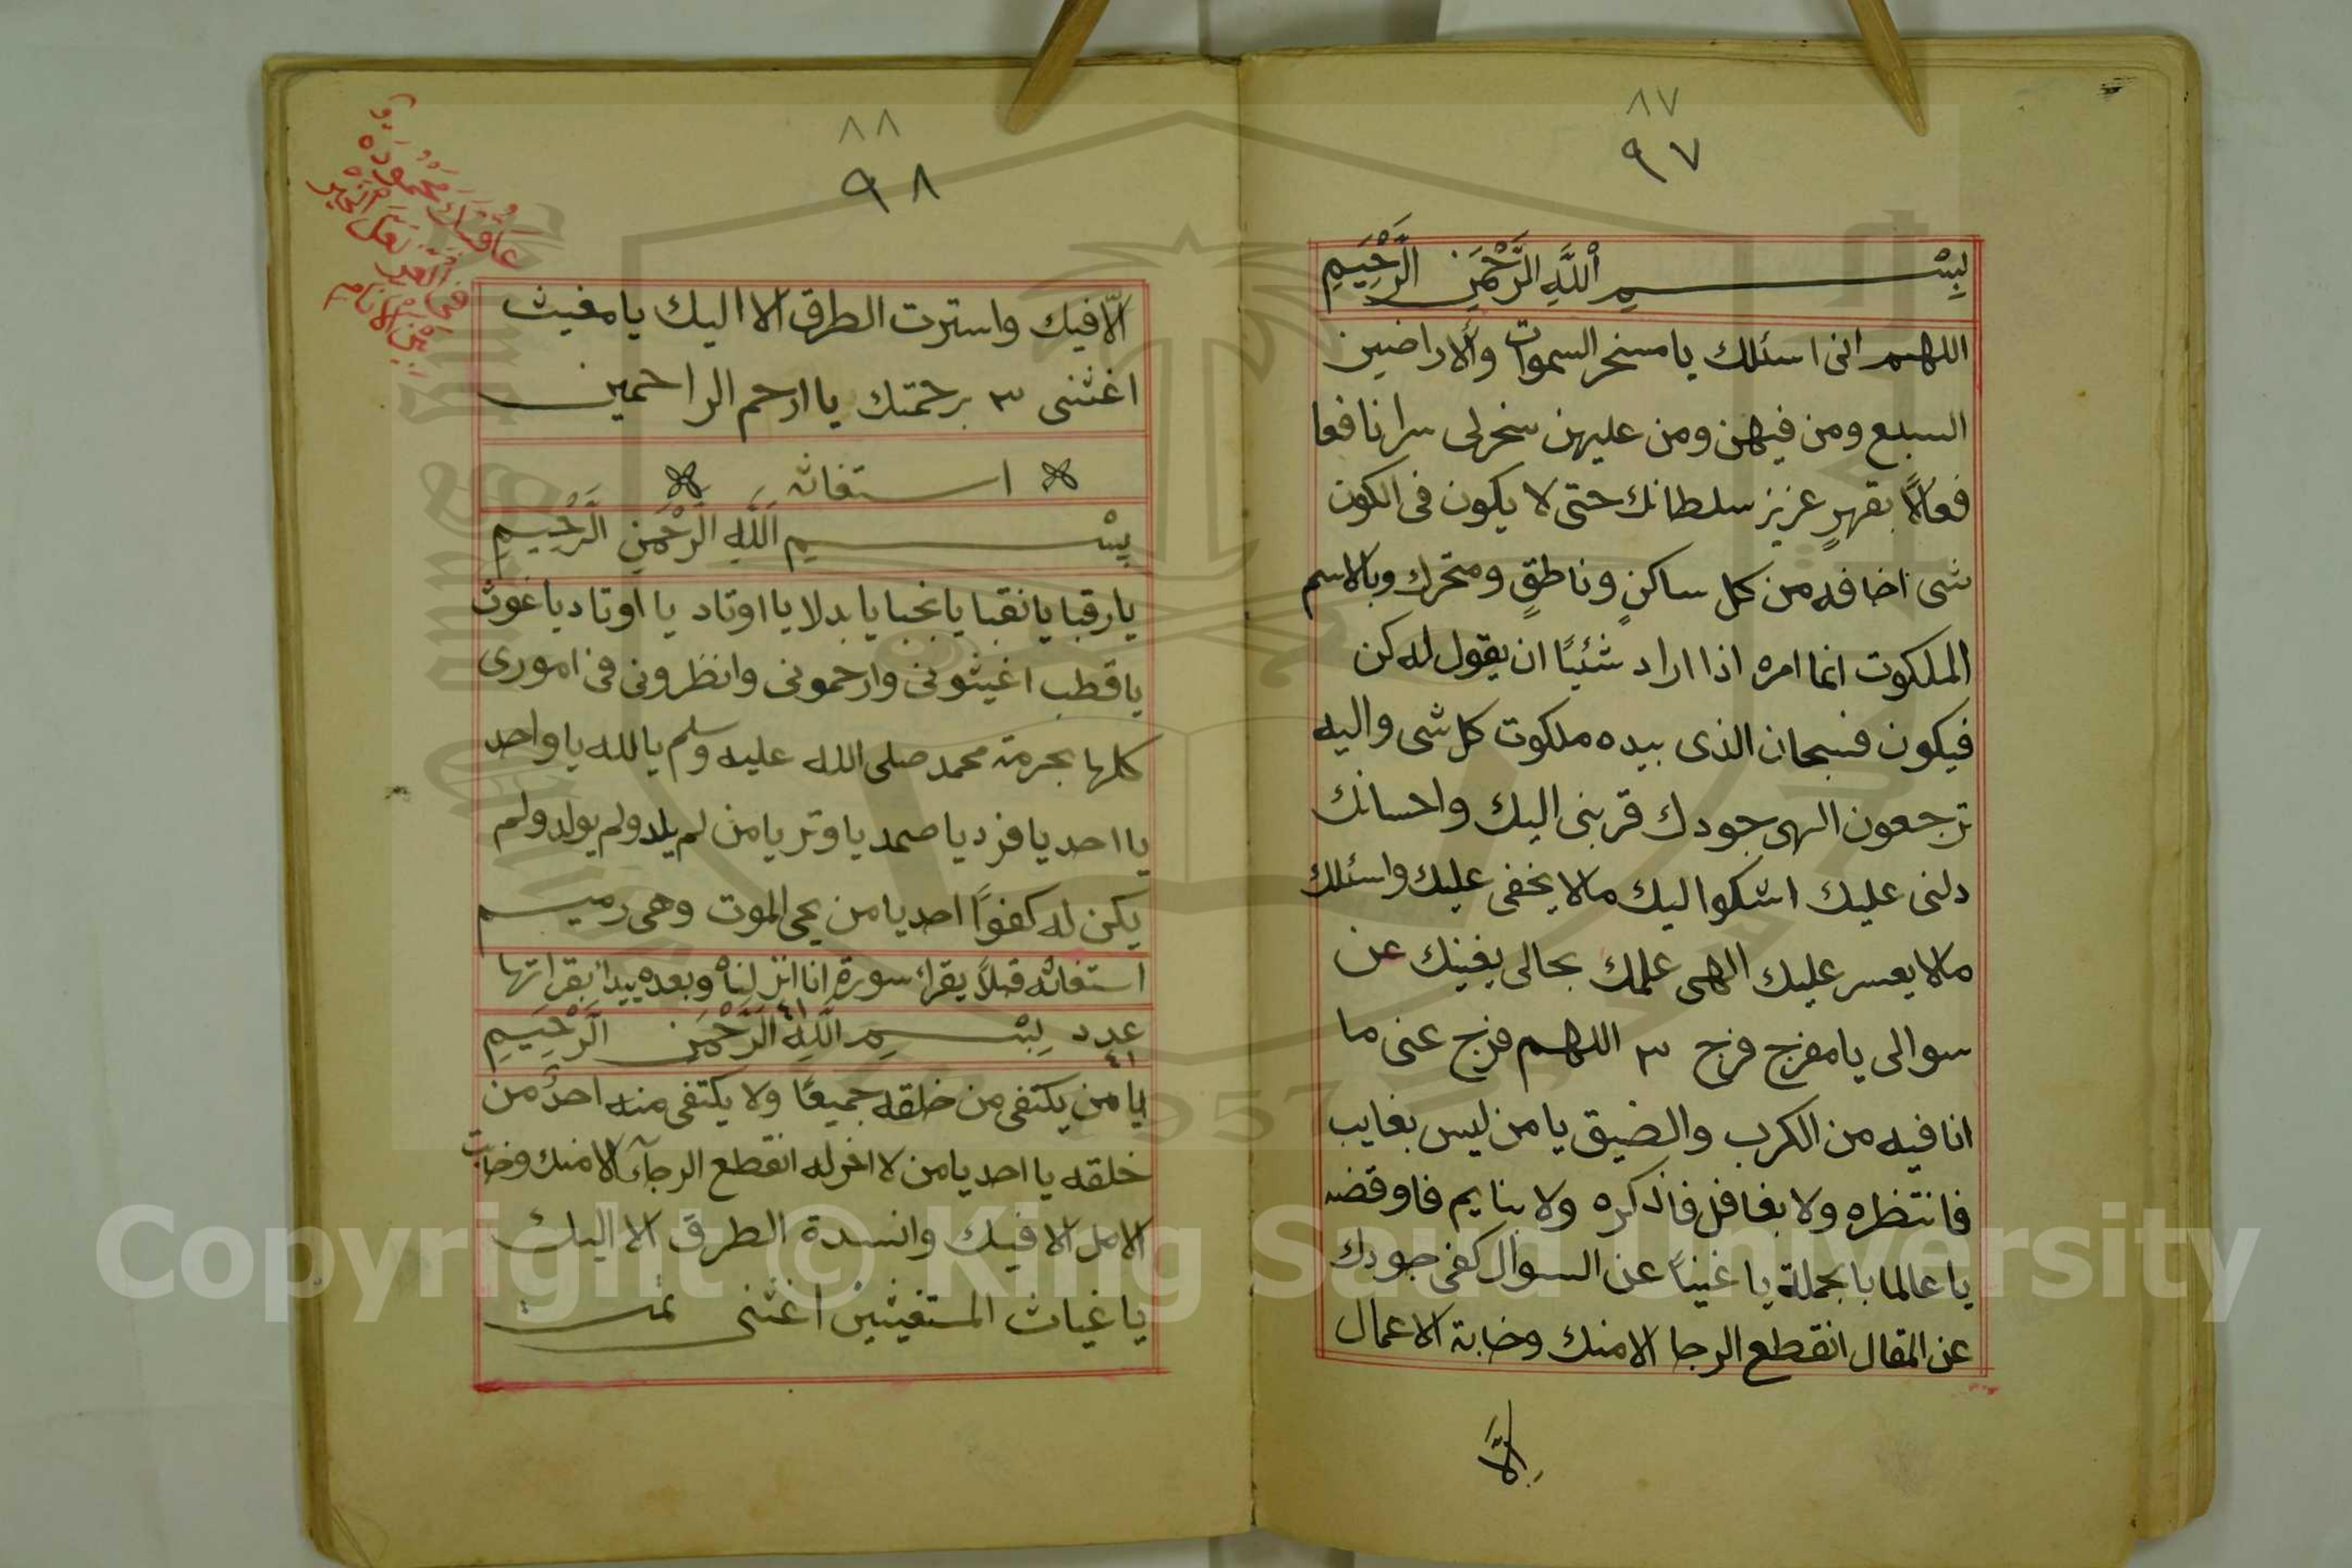 ٨٧
٩٧
بِسْمِ اللَّهِ الرَّحْمَنِ الرَّحِيمِ
اللهم انى اسئلك يا مسخر السموات والاراضين
السبع ومن فيهن ومن عليهن سخرلى سرا نافعا
فعالاً بقهرٍ عزيز سلطانك حتى لا يكون فى الكون
شى اخافه من كل ساكنٍ وناطقٍ ومتحرك وبالاسم
الملكوت انما امره اذا اراد شئيًا ان يقول له كن
فيكون فسبحان الذى بيده ملكوت كل شى واليه
ترجعون الهى جودك قربنى اليك واحسانك
دلنى عليك اشكوا ليك مالا يخفى عليك واسئلك
مالا يعسر عليك الهى علمك بحالى يغينك عن
سوالى يا مفرج فرج ٣ اللهم فرج عنى ما
انا فيه من الكرب والضيق يا من ليس بغايب
فانتظره ولا بغافل فاذكره ولا بنايم فاوقضه
يا عالما بالجملة يا غنيناً عن السوال كفى جودك
عن المقال انقطع الرجا الا منك وخابة الاعمال
اِلَّا
٨٨
٩٨
الّا فيك واسترت الطرق الا اليك يا مغيث
اغثنى ٣ برحمتك يا ارحم الراحمين
استغاثه
بِسْمِ اللَّهِ الرَّحْمَنِ الرَّحِيمِ
يا رقبا يا نقبا يا نجبا يا بدلا يا اوتاد يا اوتاد يا غوث
يا قطب اغيثونى وارحمونى وانظرونى فى امورى
كلها بحرمة محمد صلى الله عليه وسلم يا لله يا واحد
يا احد يا فرد يا صمد يا وتر يا من لم يلد ولم يولد ولم
يكن له كفوًا احد يا من يحى الموت وهى رميم
استغاثه قبلاً يقرا سورة انا انزلناه وبعده يبدا بقراتها
٤١
عدد بِسْمِ اللَّهِ الرَّحْمَنِ الرَّحِيمِ
٤١
يا من يكتفى من خلقه جميعًا ولا يكتفى منه احدٌ من
خلقه يا احد يا من لا اخر له انقطع الرجآء الا منك وخابت
الامل الا فيك وانسدة الطرق الا اليك
يا غياث المستغيثين اغثنى تمت
Copyright © King Saud University
1957